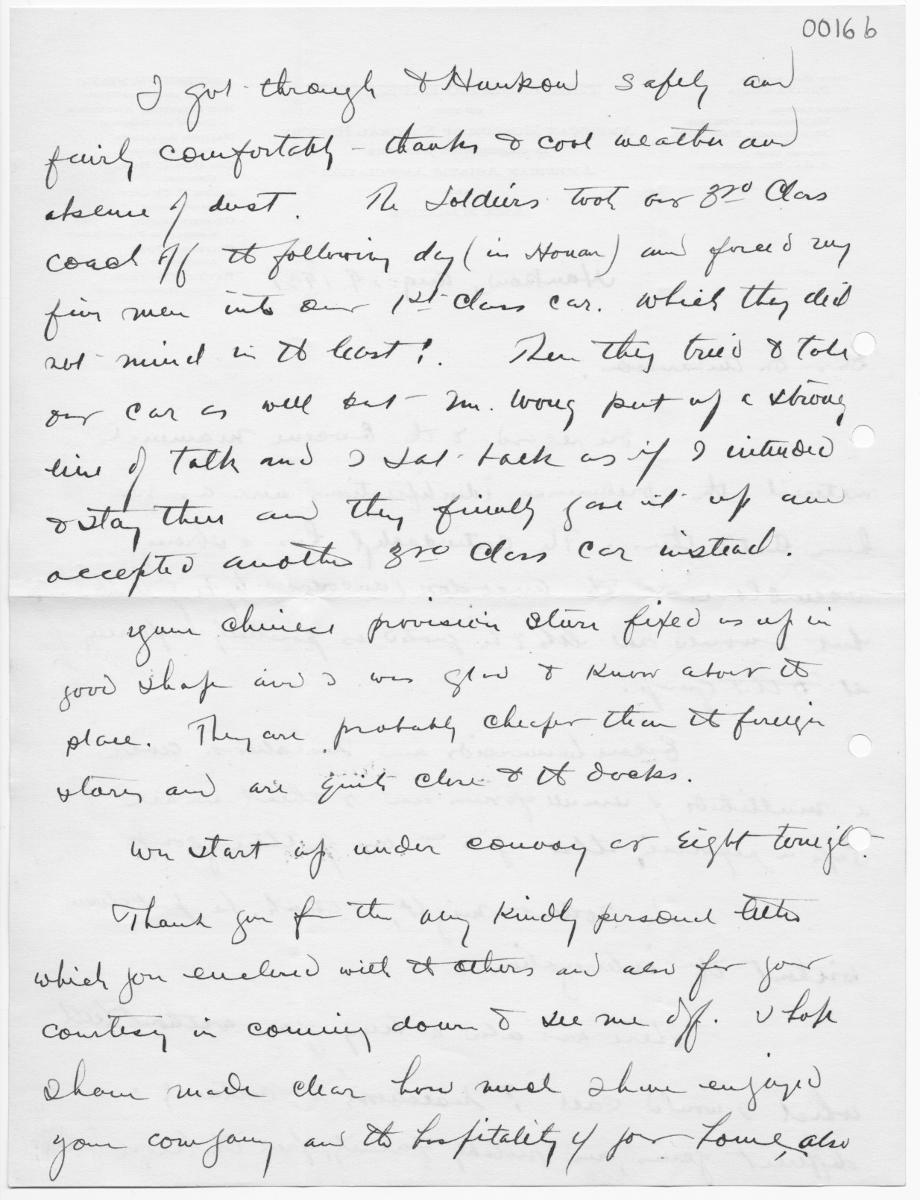 00166
I got through to Hankow safely and
fairly comfortably - thanks to cool weather and
absence of dust. The soldiers took our 3rd Class
coach off the following day (in Honan) and forced my
five men into our 1st Class car. which they did
not mind in the least!. Then they tried to take
our car as well but Mr. Wong put up a strong
line of talk and I sat back as if I intended
to stay there and they finally gave it up and
accepted another 3rd Class car instead.
Your Chinese provision store fixed us up in
good shape and I was glad to know about the
place. They are probably cheaper than the foreign
stores and are quite close to the docks.
We start up under convoy at eight tonight.
Thank you for the very kindly personal letter
which you enclosed with the others and also for your
courtesy in coming down to see me off. I hope
I have made clear how much I have enjoyed
your company and the hospitality of your home, also